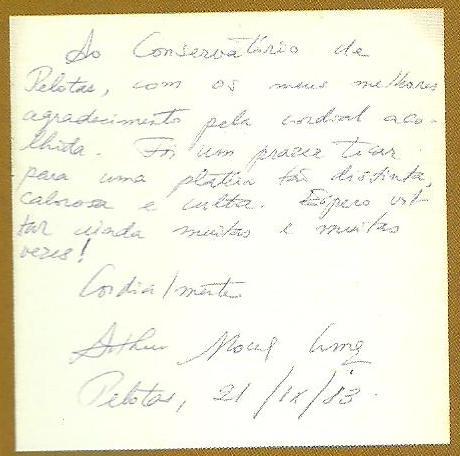 Ao Conservatório de
Pelotas, com os meus melhores
agradecimento pela cordial aco-
lhida. Foi um prazer tocar
para uma platéia tão distinta,
calorosa e culta. Espero vol-
tar ainda muitas e muitas
vezes!
Cordialmente
Arthur Moreira Lima
Pelotas, 21/IX/83.